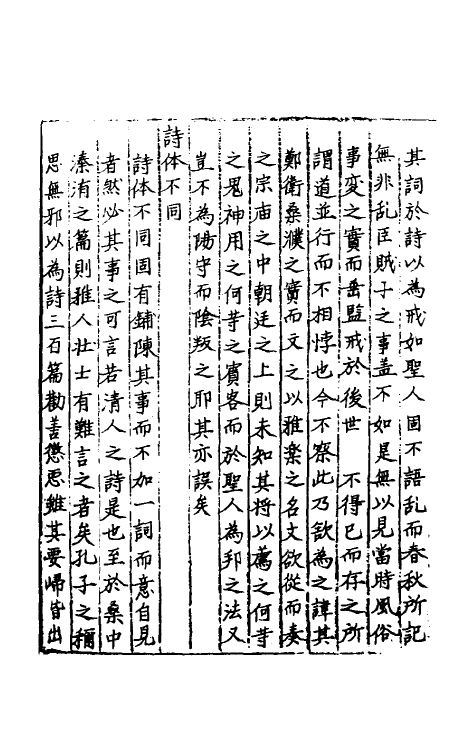 其詞於詩以為戒如聖人固不語乱而春秋所記
無非乱臣賊子之事盖不如是無以見當時風俗
事変之實而垂監戒於後世　不得已而存之所
謂道並行而不相悖也今不察此乃欲為之諱其
鄭衛桑濮之實而文之以雅楽之名又欲従而奏
之宗庙之中朝廷之上則未知其将以薦之何等
之鬼神用之何等之賓客而於聖人為邦之法又
豈不為陽守而陰叛之耶其亦誤矣
詩体不同
詩体不同固有鋪陳其事而不加一詞而意自見
者然必其事之可言者若清人之詩是也至於桑中
溱洧之篇則雅人壮士有難言之者矣孔子之稱
思無邪以為詩三百篇勸善懲悪雖其要帰皆出